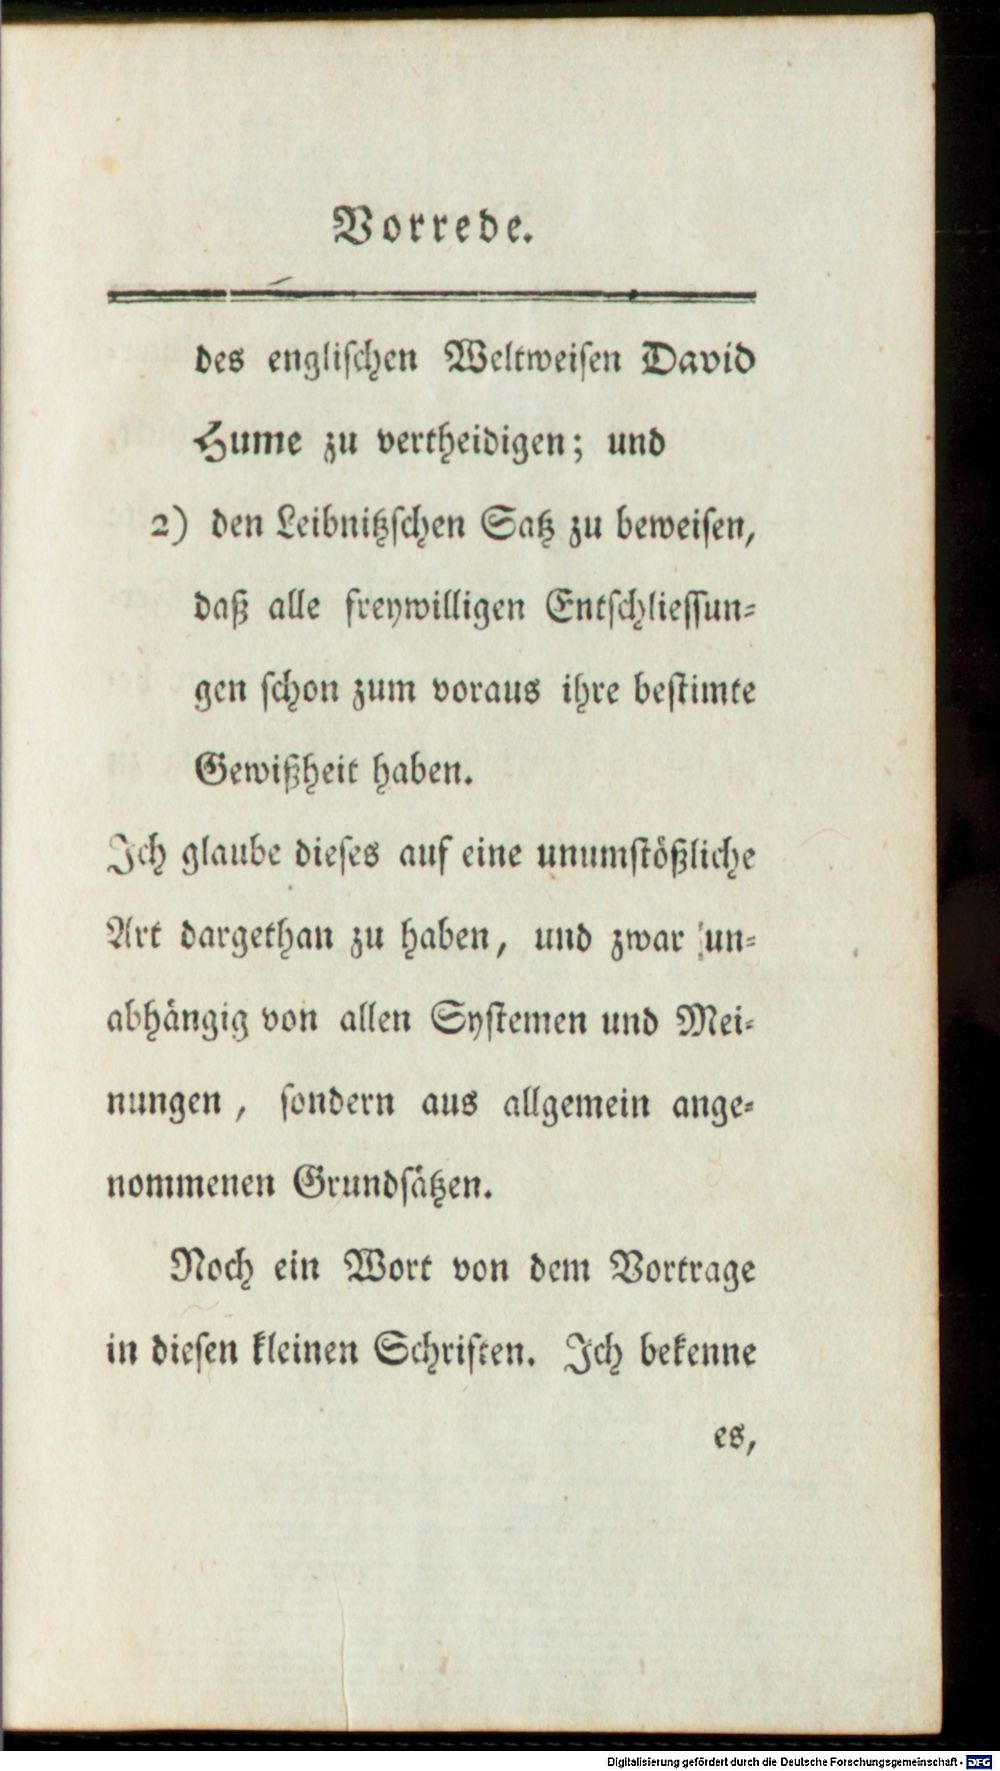 Vorrede.
des englischen Weltweisen David
Hume zu vertheidigen; und
2) den Leibnitzschen Satz zu beweisen,
daß alle freywilligen Entschliessun-
gen schon zum voraus ihre bestimte
Gewißheit haben.
Ich glaube dieses auf eine unumstößliche
Art dargethan zu haben, und zwar un-
abhängig von allen Systemen und Mei-
nungen, sondern aus allgemein ange-
nommenen Grundsätzen.
Noch ein Wort von dem Vortrage
in diesen kleinen Schriften. Ich bekenne
es,
Digitalisierung gefördert durch die Deutsche Forschungsgemeinschaft - DFG